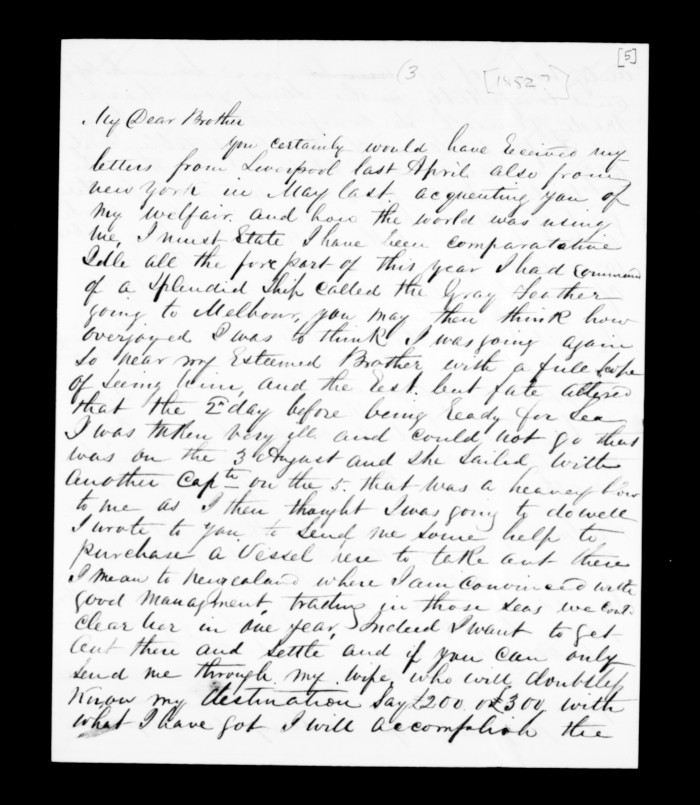 [5]
(3
[1852?]
My Dear Brother
You certainly would have Received my
letters from Liverpool last April also from
new york in May last. acquenting you of
My welfair. and how the world was using
me, I must State I have been comparatative
Idle all the fore part of this year I had Command
of a Splendid Ship called the Gray Feather
going to Melbour, you may then think how
overjoyed I was to think I was going again
So near my Esteemed Brother with a full hope
of Seing him, and the Rest. but fate altered
that the 2d day before being Ready for Sea
I was taken very ill and could not go that
was on the 3 August and She Sailed with
another Captn on the 5. that was a heavey blow
to me as I then thought I was going to do well
I wrote to you to Send me some help to
purchase a Vessel here to take out there
I mean to newzealand where I am convinced with
good Managment, trading in those Seas we could
clear her in one year, Indeed I want to get
out there and Settle and if you can only
Send me through my wife who will doubtless
Know my destination Say £200 or £300 with
what I have got I will accomplish the